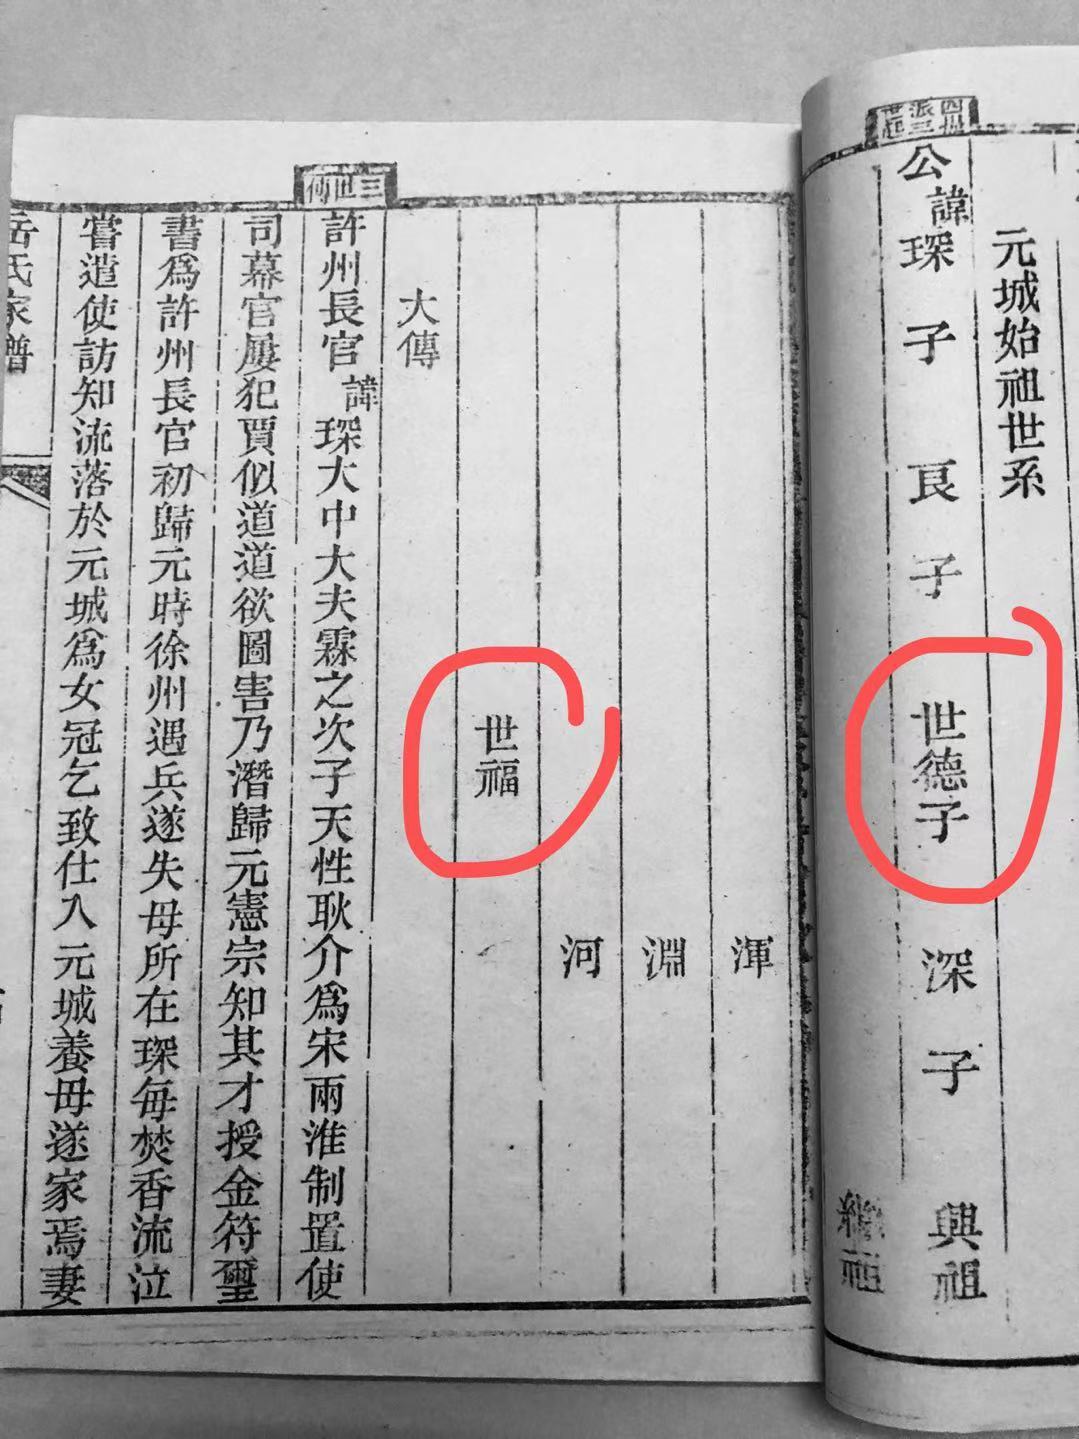 派三
世起
元城始祖世系
公諱琛子良子世德子深子興祖
繼祖
渾
淵
河
世福
大傳
三世傳
許州長官諱琛大中大夫霖之次子天性耿介爲宋兩淮制置使
司幕官屢犯賈似道道欲圖害乃潛歸元憲宗知其才授金符璽
書爲許州長官初歸元時徐州遇兵遂失母所在琛每焚香流泣
嘗遣使訪知流落於元城爲女冠乞致仕入元城養母遂家焉妻
岳氏家譜